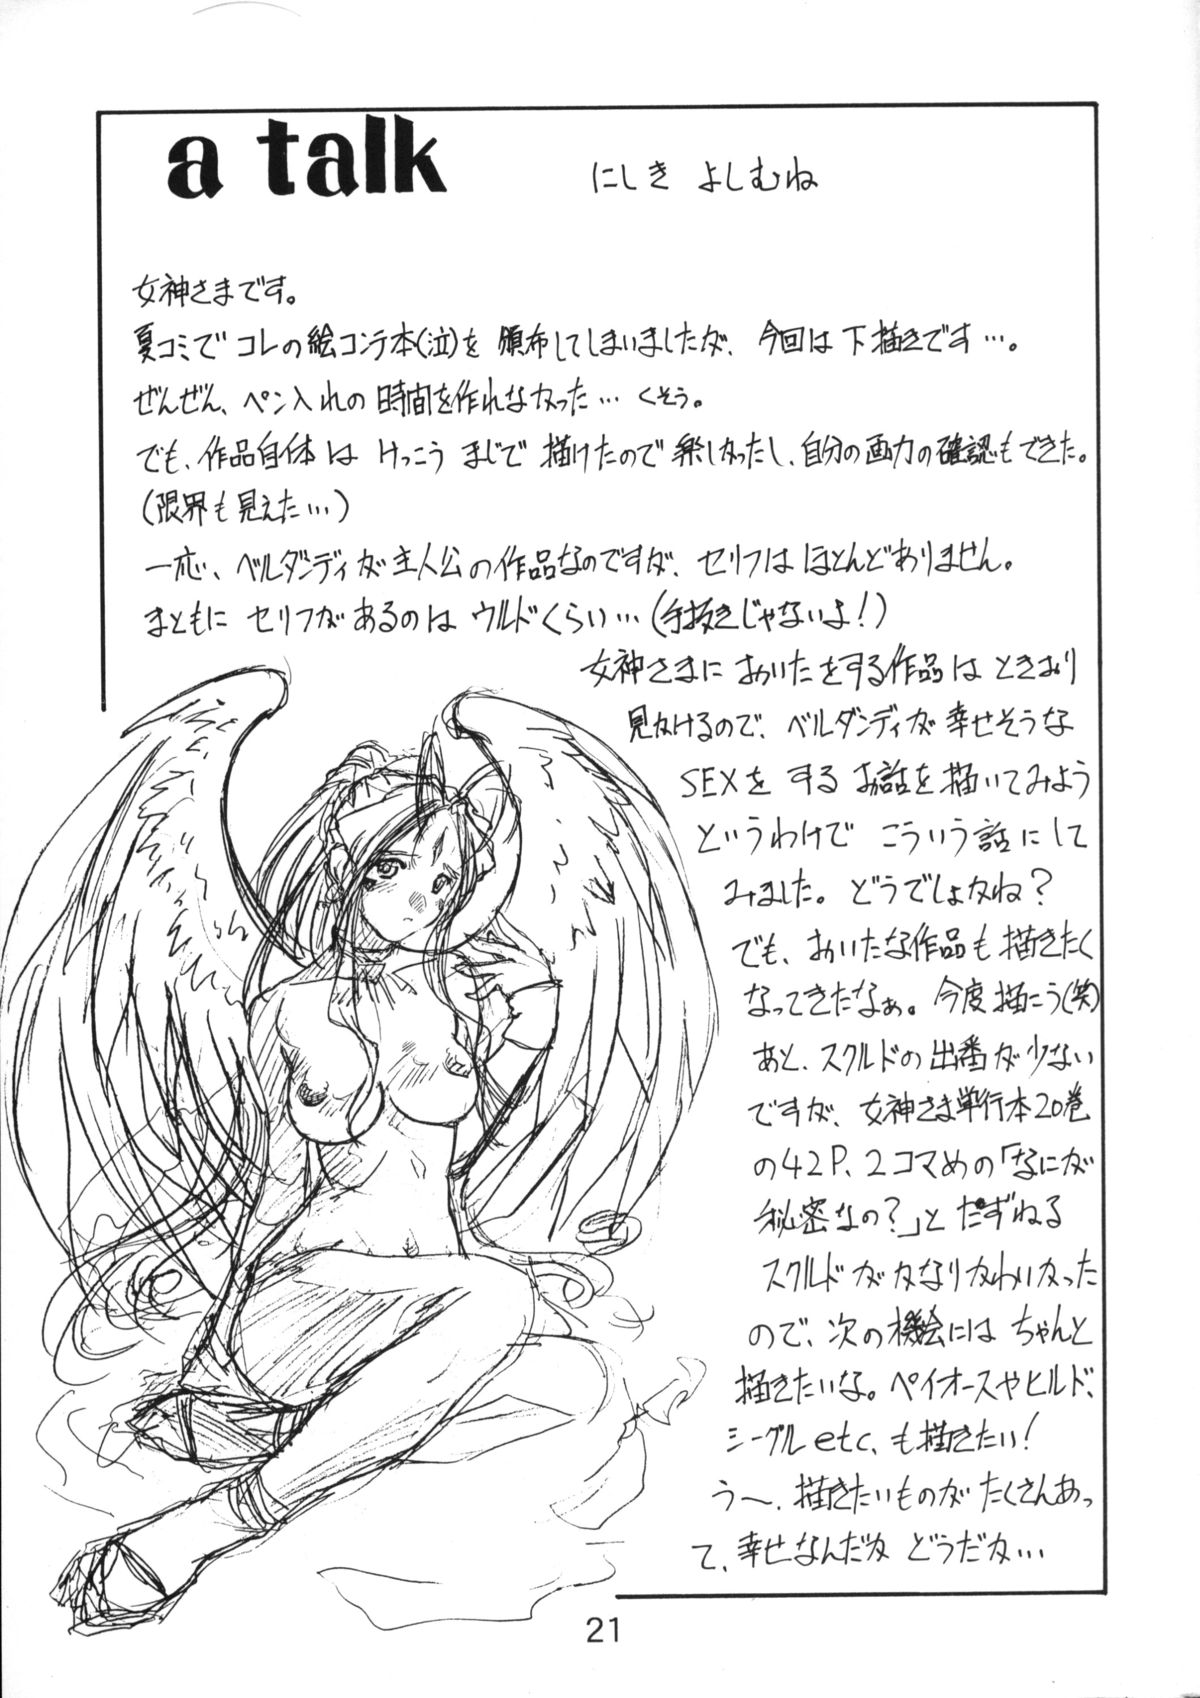 a talk
にしき よしむね
女神さまです。
夏コミで コレの絵コンテ本(泣)を 頒布してしまいましたが、今回は 下描きです…。
ぜんぜん、ペン入れの 時間を作れなかった… くそう。
でも、作品自体は けっこう まじで 描けたので 楽しかったし、自分の画力の確認もできた。
(限界も見えた…)
一応、ベルダンディが主人公の作品なのですが、セリフは ほとんどありません。
まともに セリフがあるのは ウルドくらい…(手抜きじゃないよ!)
女神さまに おいたをする作品は ときおり
見かけるので、ベルダンディが幸せそうな
SEXを する お話を描いてみよう
というわけで こういう話にして
みました。どうでしょかね?
でも、おいたな作品も描きたく
なってきたなぁ。今度描こう(笑)
あと、スクルドの出番が少ない
ですが、女神さま単行本20巻
の42P、2コマめの「なにが
秘密なの?」と たずねる
スクルドが かなりかわいかった
ので、次の機会には ちゃんと
描きたいな。ペイオースやヒルド、
シーグルetc、も描きたい!
う〜、描きたいものが たくさんあっ
て、幸せなんだか どうだか…
21